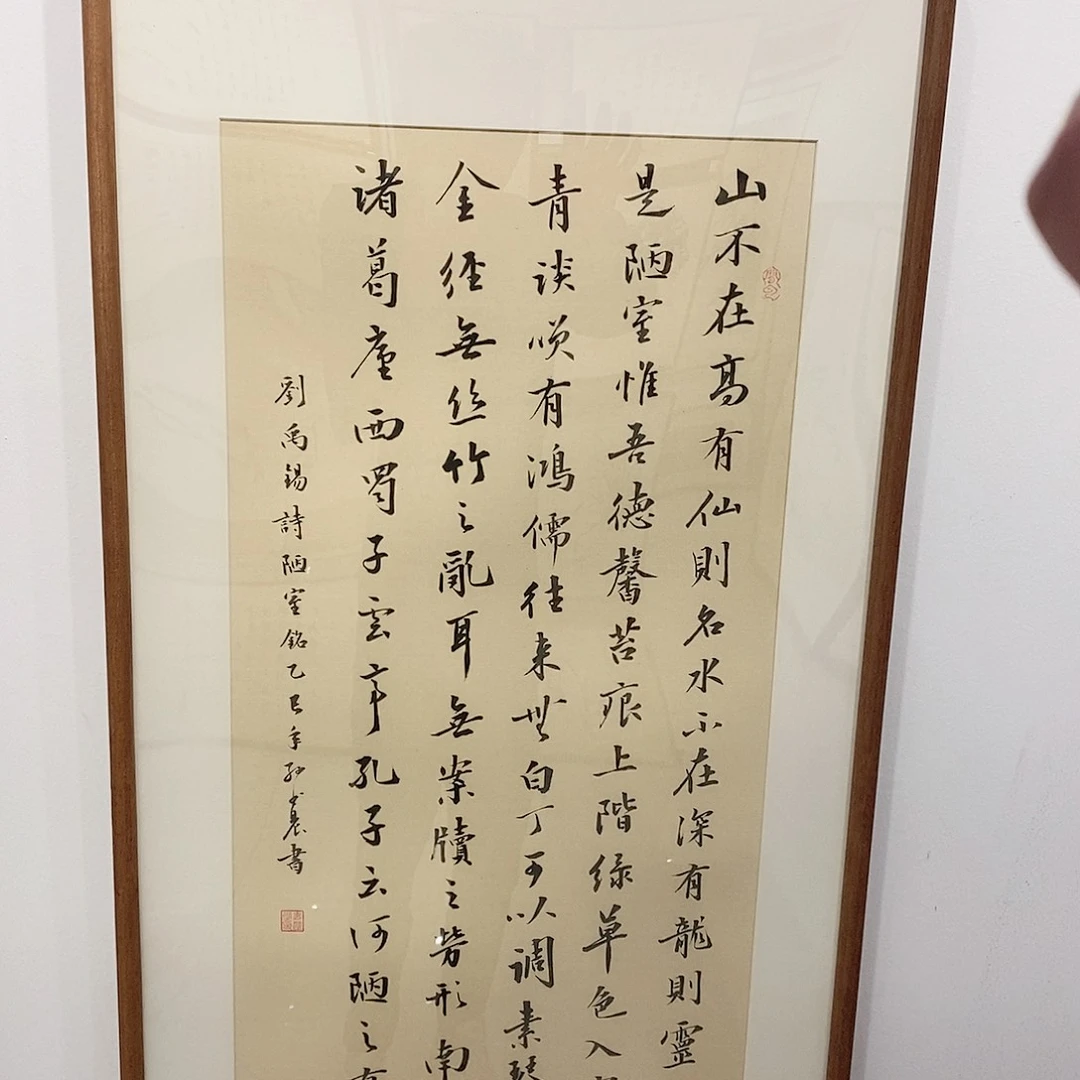 山不在高有仙則名水不在深有龍則靈
是陋室惟吾德馨苔痕上階緑草色入
青談唉有鴻儒往来無白丁可以調素琴
金徑無丝竹之亂耳無案牘之勞形南
諸葛廬西蜀子雲亭孔子云何陋之有
劉禹錫詩陋室銘乙巳年孙書